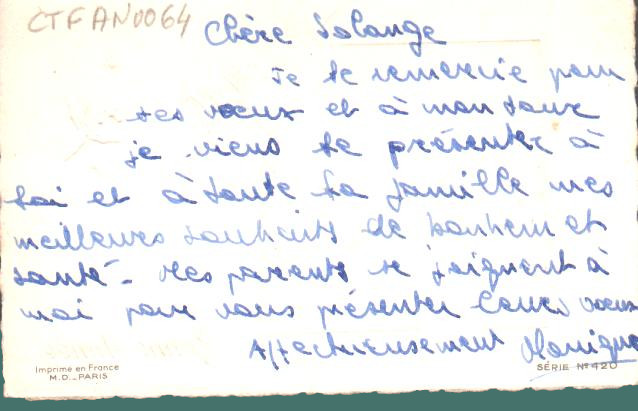 CTFAN0064
Chère Solange
Je te remercie pour
tes voeux et à mon tour
je viens te présenter à
toi et à toute ta famille mes
meilleures souhaits de bonheur et
santé - Mes parents se joignent à
moi pour vous présenter leurs voeux
Affectueusement Monique
Imprimé en France
M.D. - PARIS
SÉRIE N° 420